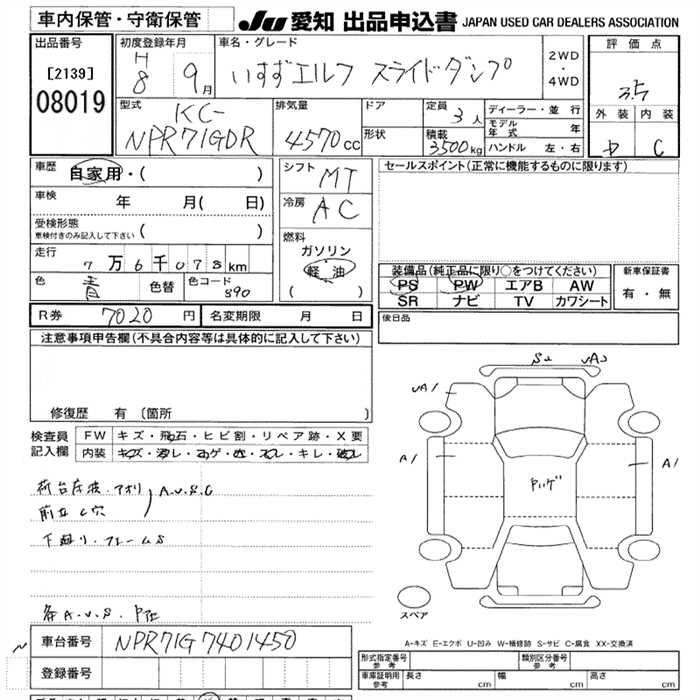 車内保管・守衛保管
JU 愛知 出品申込書 JAPAN USED CAR DEALERS ASSOCIATION
出品番号
[2139]
08019
初度登録年月
H 8 9月
車名・グレード
いすずエルフ スライドダンプ
2WD
・
4WD
評価点
3.5
外装 内装
C
型式
KC-
NPR71GDR
排気量
4570cc
ドア
形状
定員
3人
積載
3500kg
ディーラー・並行
モデル年式 年
ハンドル 左・右
車歴
自家用・( )
車検
年 月( 日)
受検形態
車検付きのみ記入して下さい ( )
走行
7万6千078km
色
青
色替
色コード
890
シフト
MT
冷房
AC
燃料
ガソリン
軽油
( )
セールスポイント(正常に機能するものに限ります)
装備品(純正品に限り○をつけてください)
PS PW エアB AW
SR ナビ TV カワシート
新車保証書
有・無
R券 7020円
名変期限 月 日
後日品
注意事項申告欄(不具合内容等は具体的に記入して下さい)
修復歴 有 〔箇所 〕
検査員
記入欄
FW キズ・飛石・ヒビ割・リペア跡・X要
内装 キズ・汚レ・コゲ・穴・スレ・キレ・破レ
荷台床板.アオリ A.U.S.C
前立C穴
下廻り.フレームS
各A.U.S.
車台番号 NPR71G 7401450
登録番号
S2 UA2
UA1
A1
A1
スペア
A-キズ E-エクボ U-凹み W-補修跡 S-サビ C-腐食 XX-交換済
形式指定番号
参考
類別区分番号
参考
車庫証明用
参考
長さ cm 幅 cm 高さ cm